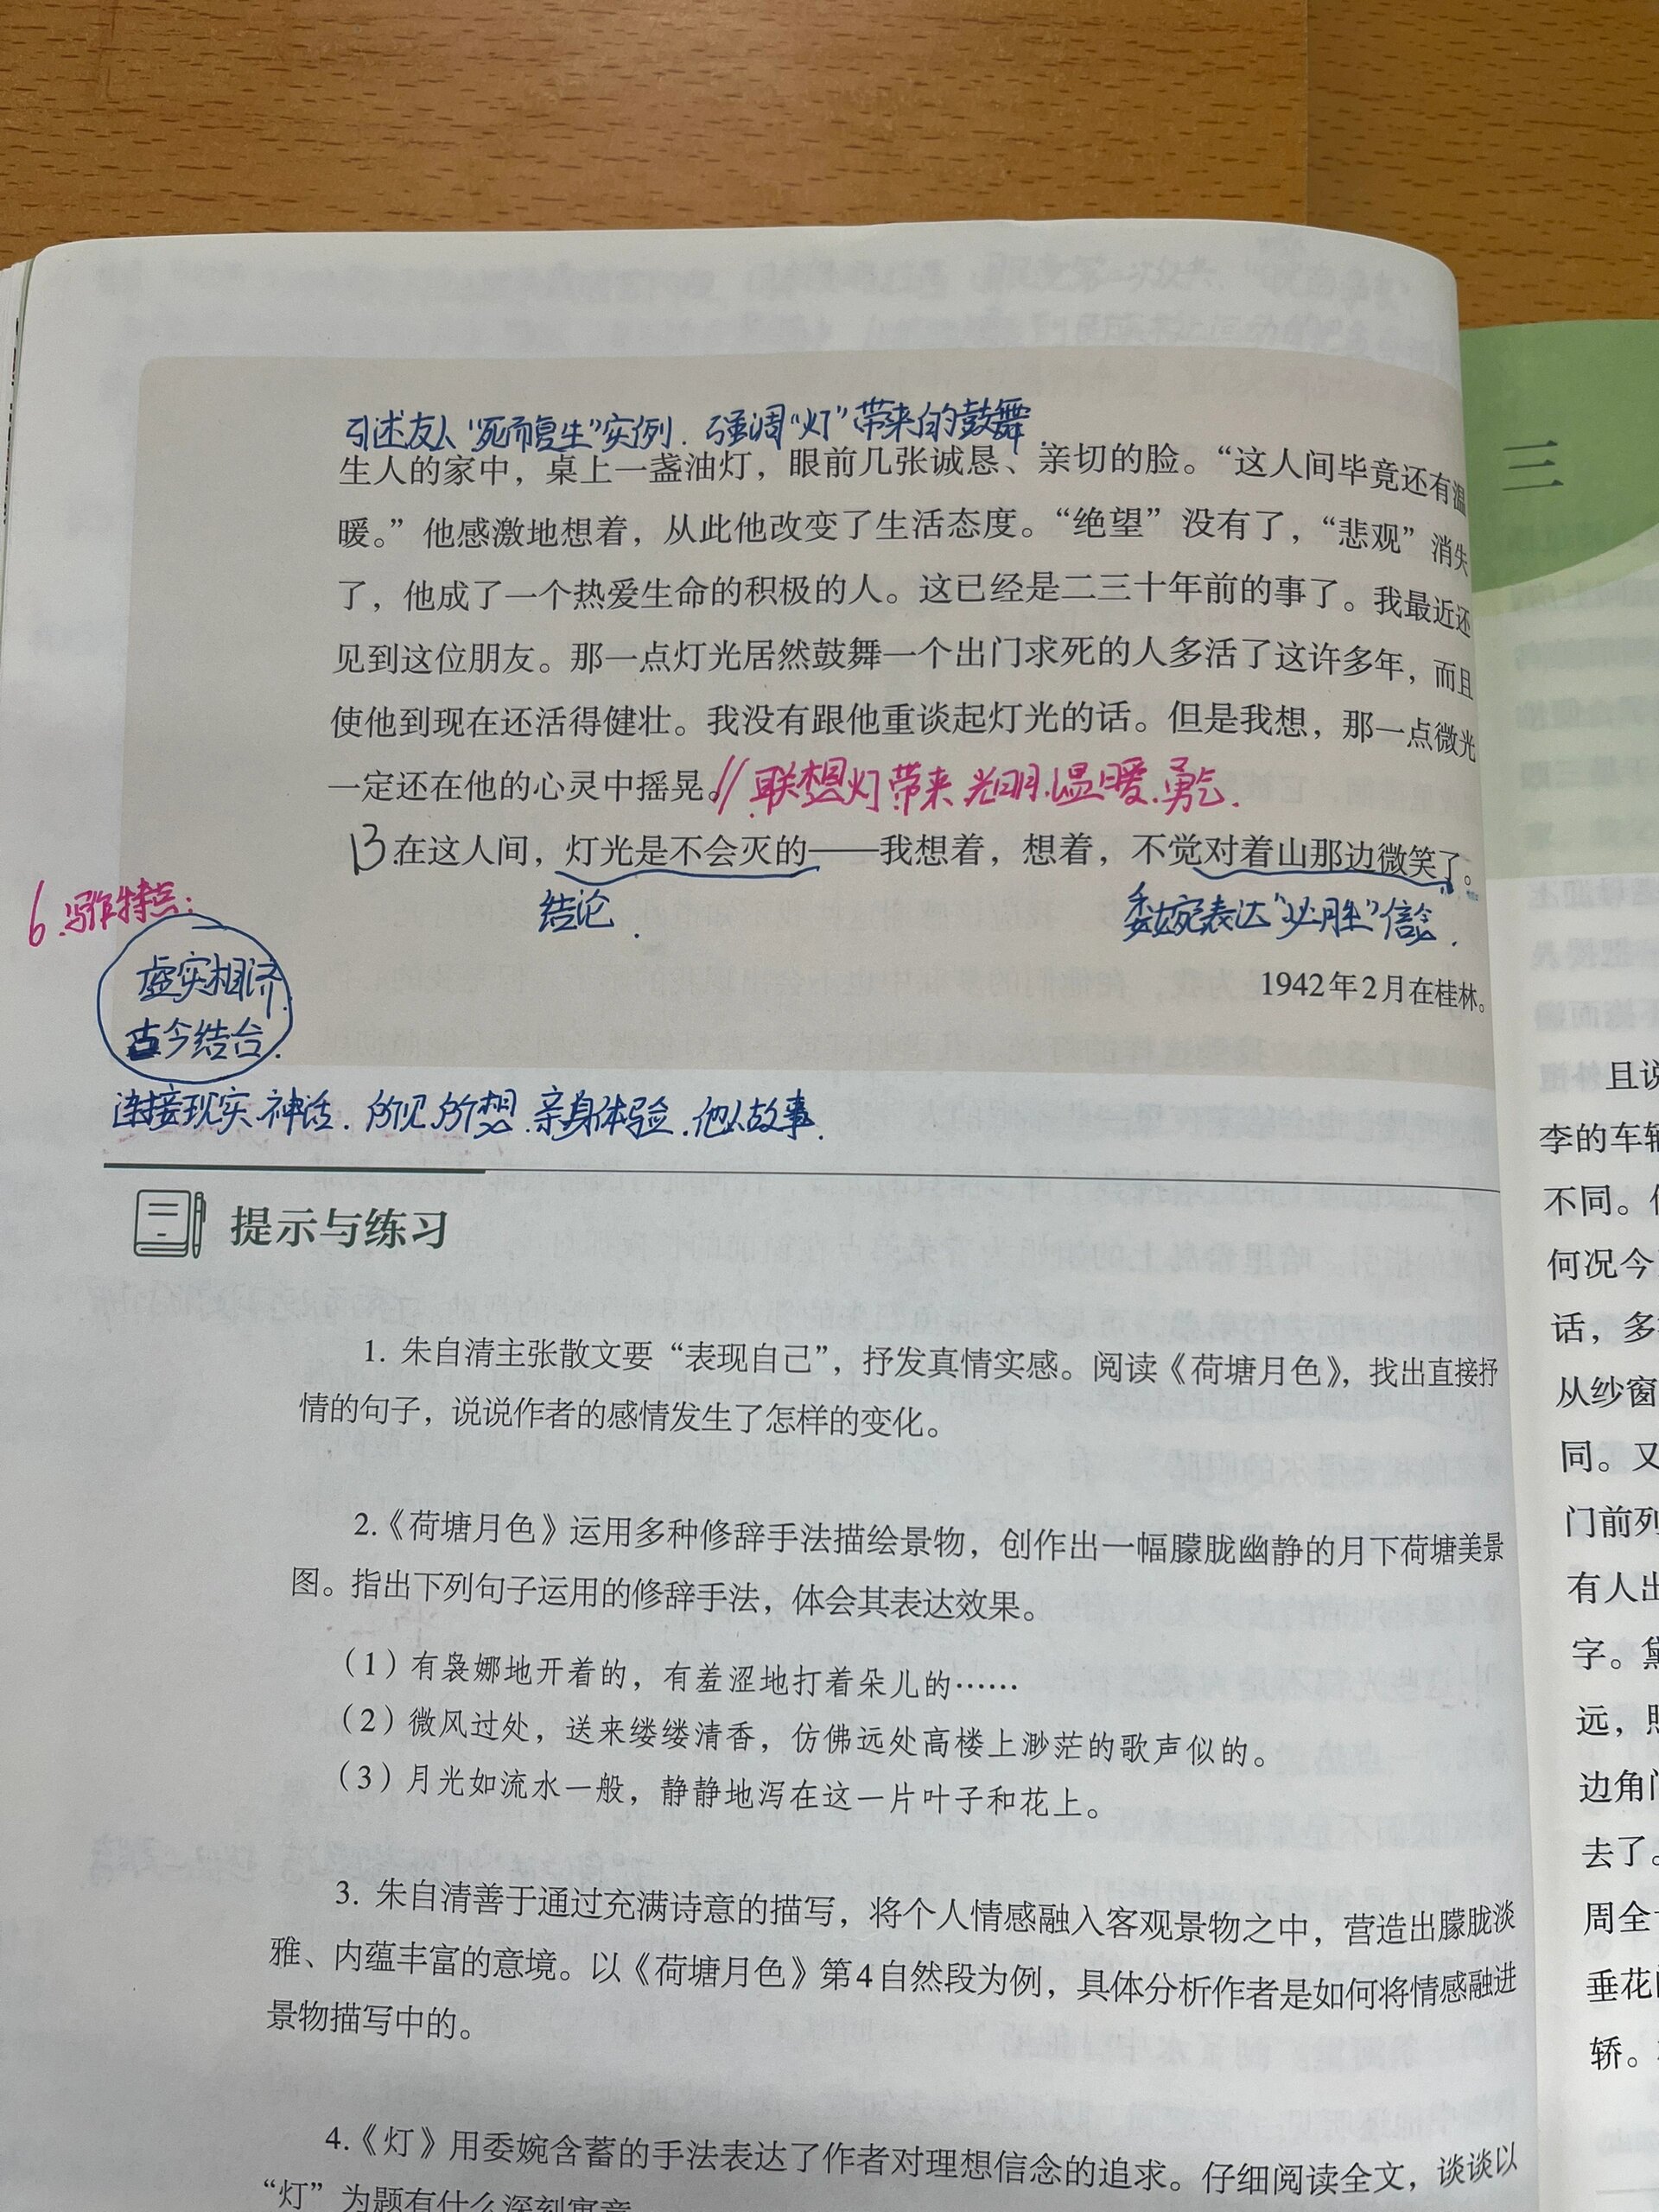 引述友人“死而复生”实例．强调“灯”带来的鼓舞．
生人的家中，桌上一盏油灯，眼前几张诚恳、亲切的脸。“这人间毕竟还有温
暖。”他感激地想着，从此他改变了生活态度。“绝望”没有了，“悲观”消失
了，他成了一个热爱生命的积极的人。这已经是二三十年前的事了。我最近还
见到这位朋友。那一点灯光居然鼓舞一个出门求死的人多活了这许多年，而且
使他到现在还活得健壮。我没有跟他重谈起灯光的话。但是我想，那一点微光
一定还在他的心灵中摇晃。// 联想灯带来光明．温暖．勇气．
13.在这人间，灯光是不会灭的——我想着，想着，不觉对着山那边微笑了。
结论．
委婉表达“必胜”信念．
6.写作特点：
虚实相济．
古今结合．
1942年2月在桂林。
连接现实．神话．所见所想．亲身体验．他人故事．
提示与练习
1. 朱自清主张散文要“表现自己”，抒发真情实感。阅读《荷塘月色》，找出直接抒
情的句子，说说作者的感情发生了怎样的变化。
2.《荷塘月色》运用多种修辞手法描绘景物，创作出一幅朦胧幽静的月下荷塘美景
图。指出下列句子运用的修辞手法，体会其表达效果。
（1）有袅娜地开着的，有羞涩地打着朵儿的……
（2）微风过处，送来缕缕清香，仿佛远处高楼上渺茫的歌声似的。
（3）月光如流水一般，静静地泻在这一片叶子和花上。
3. 朱自清善于通过充满诗意的描写，将个人情感融入客观景物之中，营造出朦胧淡
雅、内蕴丰富的意境。以《荷塘月色》第4自然段为例，具体分析作者是如何将情感融进
景物描写中的。
4.《灯》用委婉含蓄的手法表达了作者对理想信念的追求。仔细阅读全文，谈谈以
“灯”为题有什么深刻寓意
三
且说
李的车辆
不同。
何况今
话，多
从纱窗
同。又
门前列
有人出
字。黛
远，照
边角门
去了。
周全
垂花门
轿。